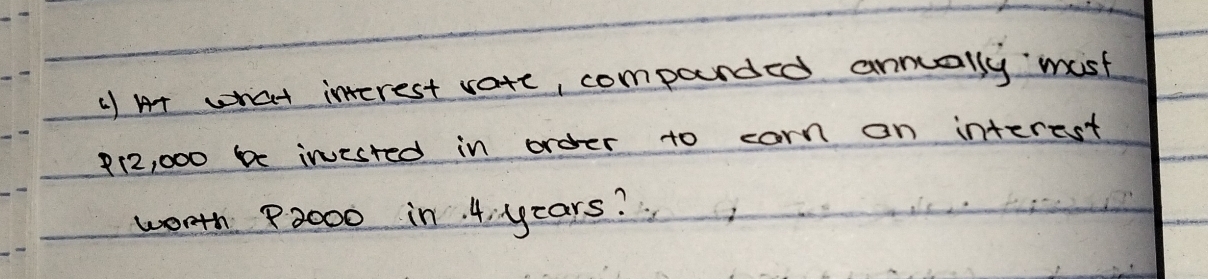 c) At what interest rate, compounded annually must
₱12,000 be invested in order to earn an interest
worth ₱2000 in 4 years?